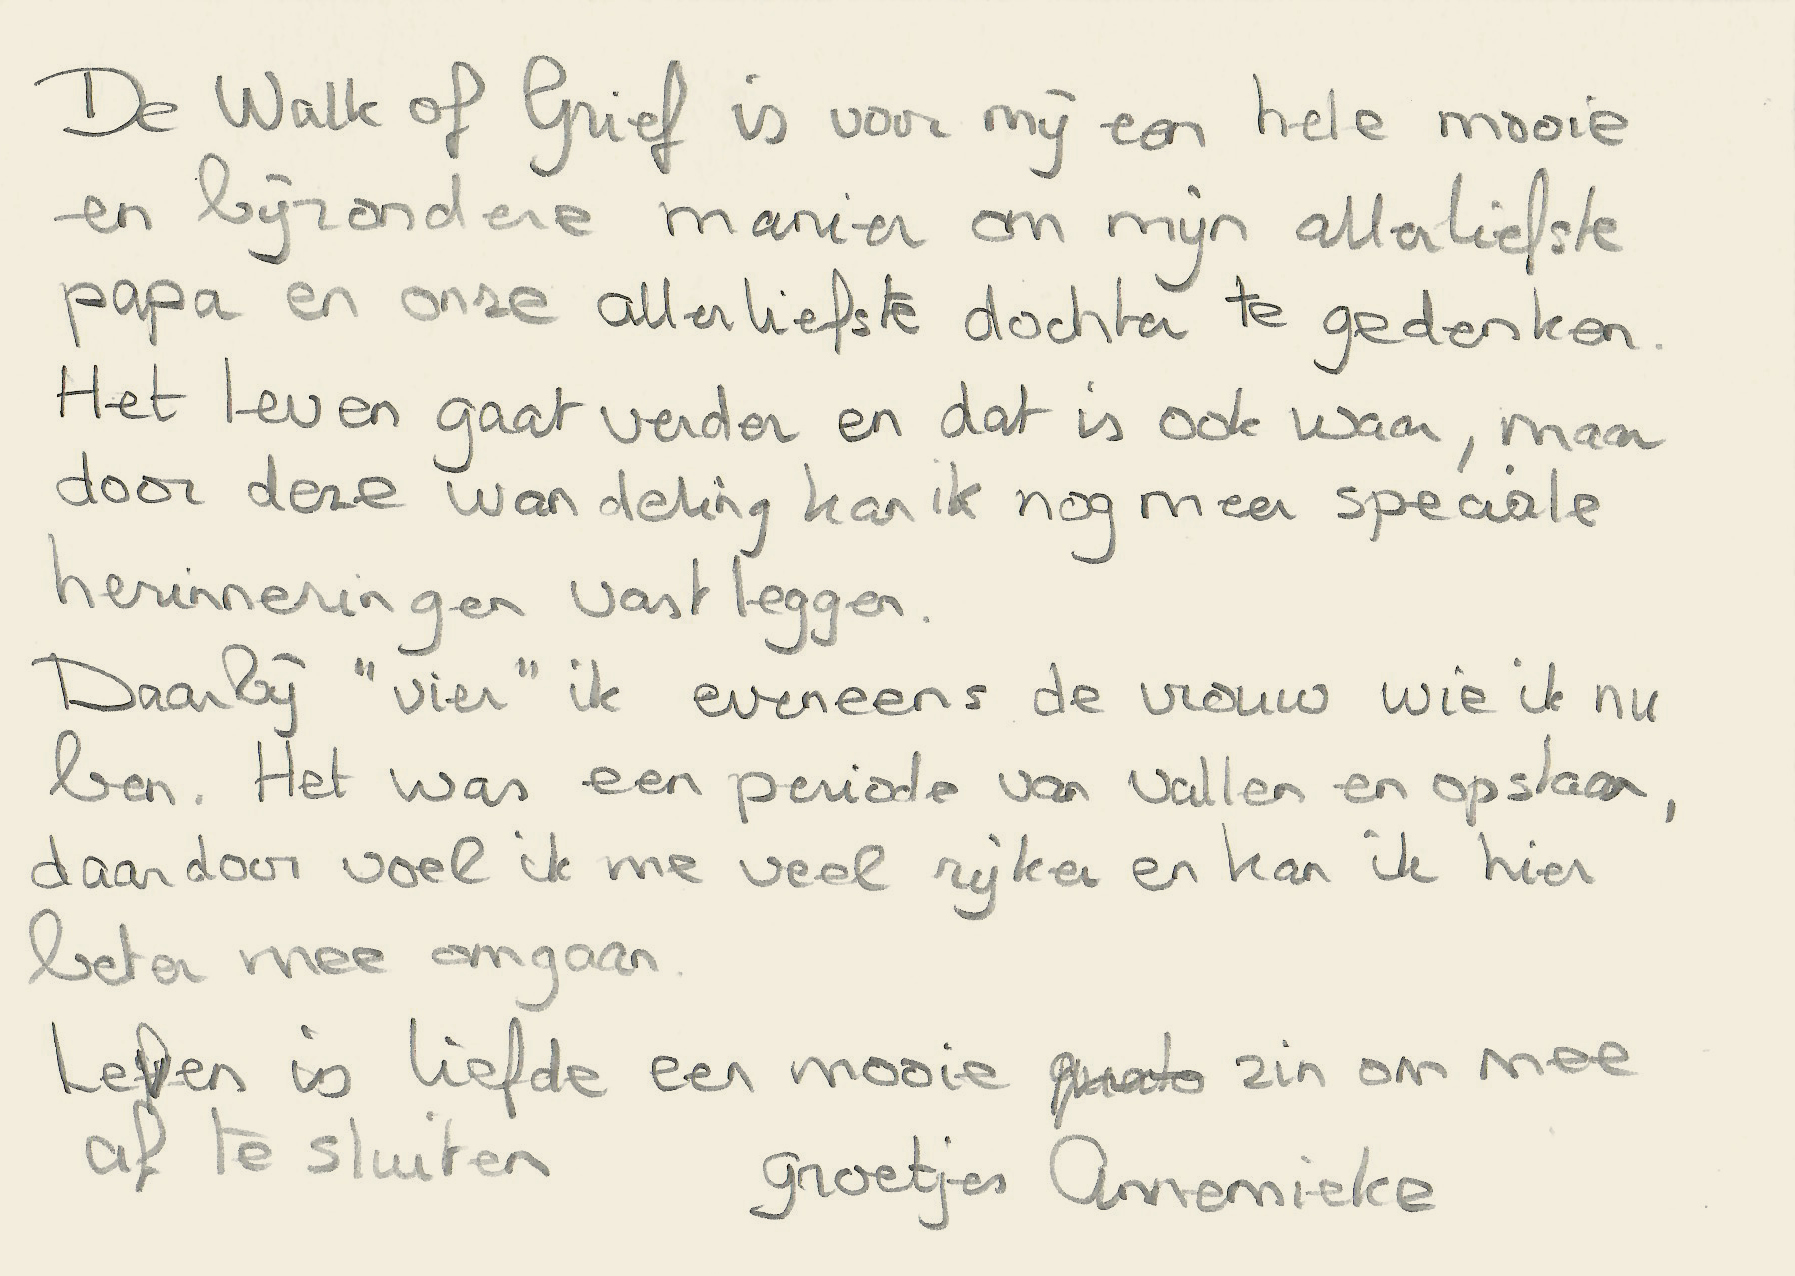 De Walk of Grief is voor mij een hele mooie
en bijzondere manier om mijn allerliefste
papa en onze allerliefste dochter te gedenken.
Het leven gaat verder en dat is ook waar, maar
door deze wandeling kan ik nog meer speciale
herinneringen vast leggen.
Daarbij "vier" ik eveneens de vrouw wie ik nu
ben. Het was een periode van vallen en opstaan,
daardoor voel ik me veel rijker en kan ik hier
beter mee omgaan.
Leven is liefde een mooie zin om mee
af te sluiten
groetjes Annemieke